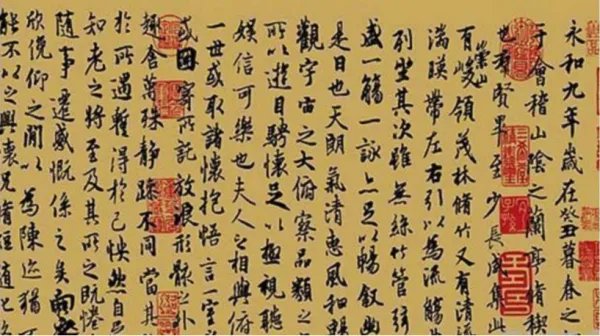 永和九年歲在癸丑暮春之
于會稽山陰之蘭亭脩稧
也羣賢畢至少長咸集此
有崇山峻領茂林脩竹又有清流
湍暎帶左右引以為流觴
列坐其次雖無絲竹管弦
盛一觴一詠亦足以暢敘幽
是日也天朗氣清惠風和暢
觀宇宙之大俯察品類之
所以遊目騁懷足以極視聽
娛信可樂也夫人之相與俯
一世或取諸懷抱悟言一室
或因寄所託放浪形骸之外
趣舍萬殊靜躁不同當其
於所遇暫得於己怏然自
知老之將至及其所之既惓
隨事遷感慨係之矣向
欣俛仰之閒以為陳迹猶
能不以之興懷況脩短隨化